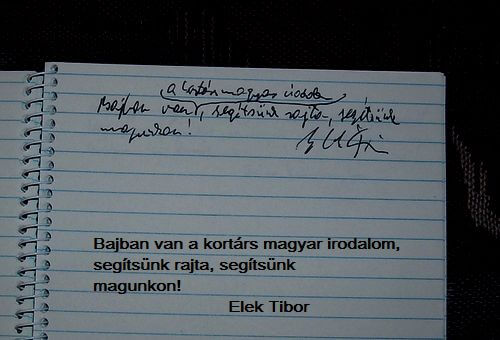 a kortárs magyar irodalom
Bajban van, segítsünk rajta, segítsünk
magunkon!
Bajban van a kortárs magyar irodalom,
segítsünk rajta, segítsünk
magunkon!
Elek Tibor